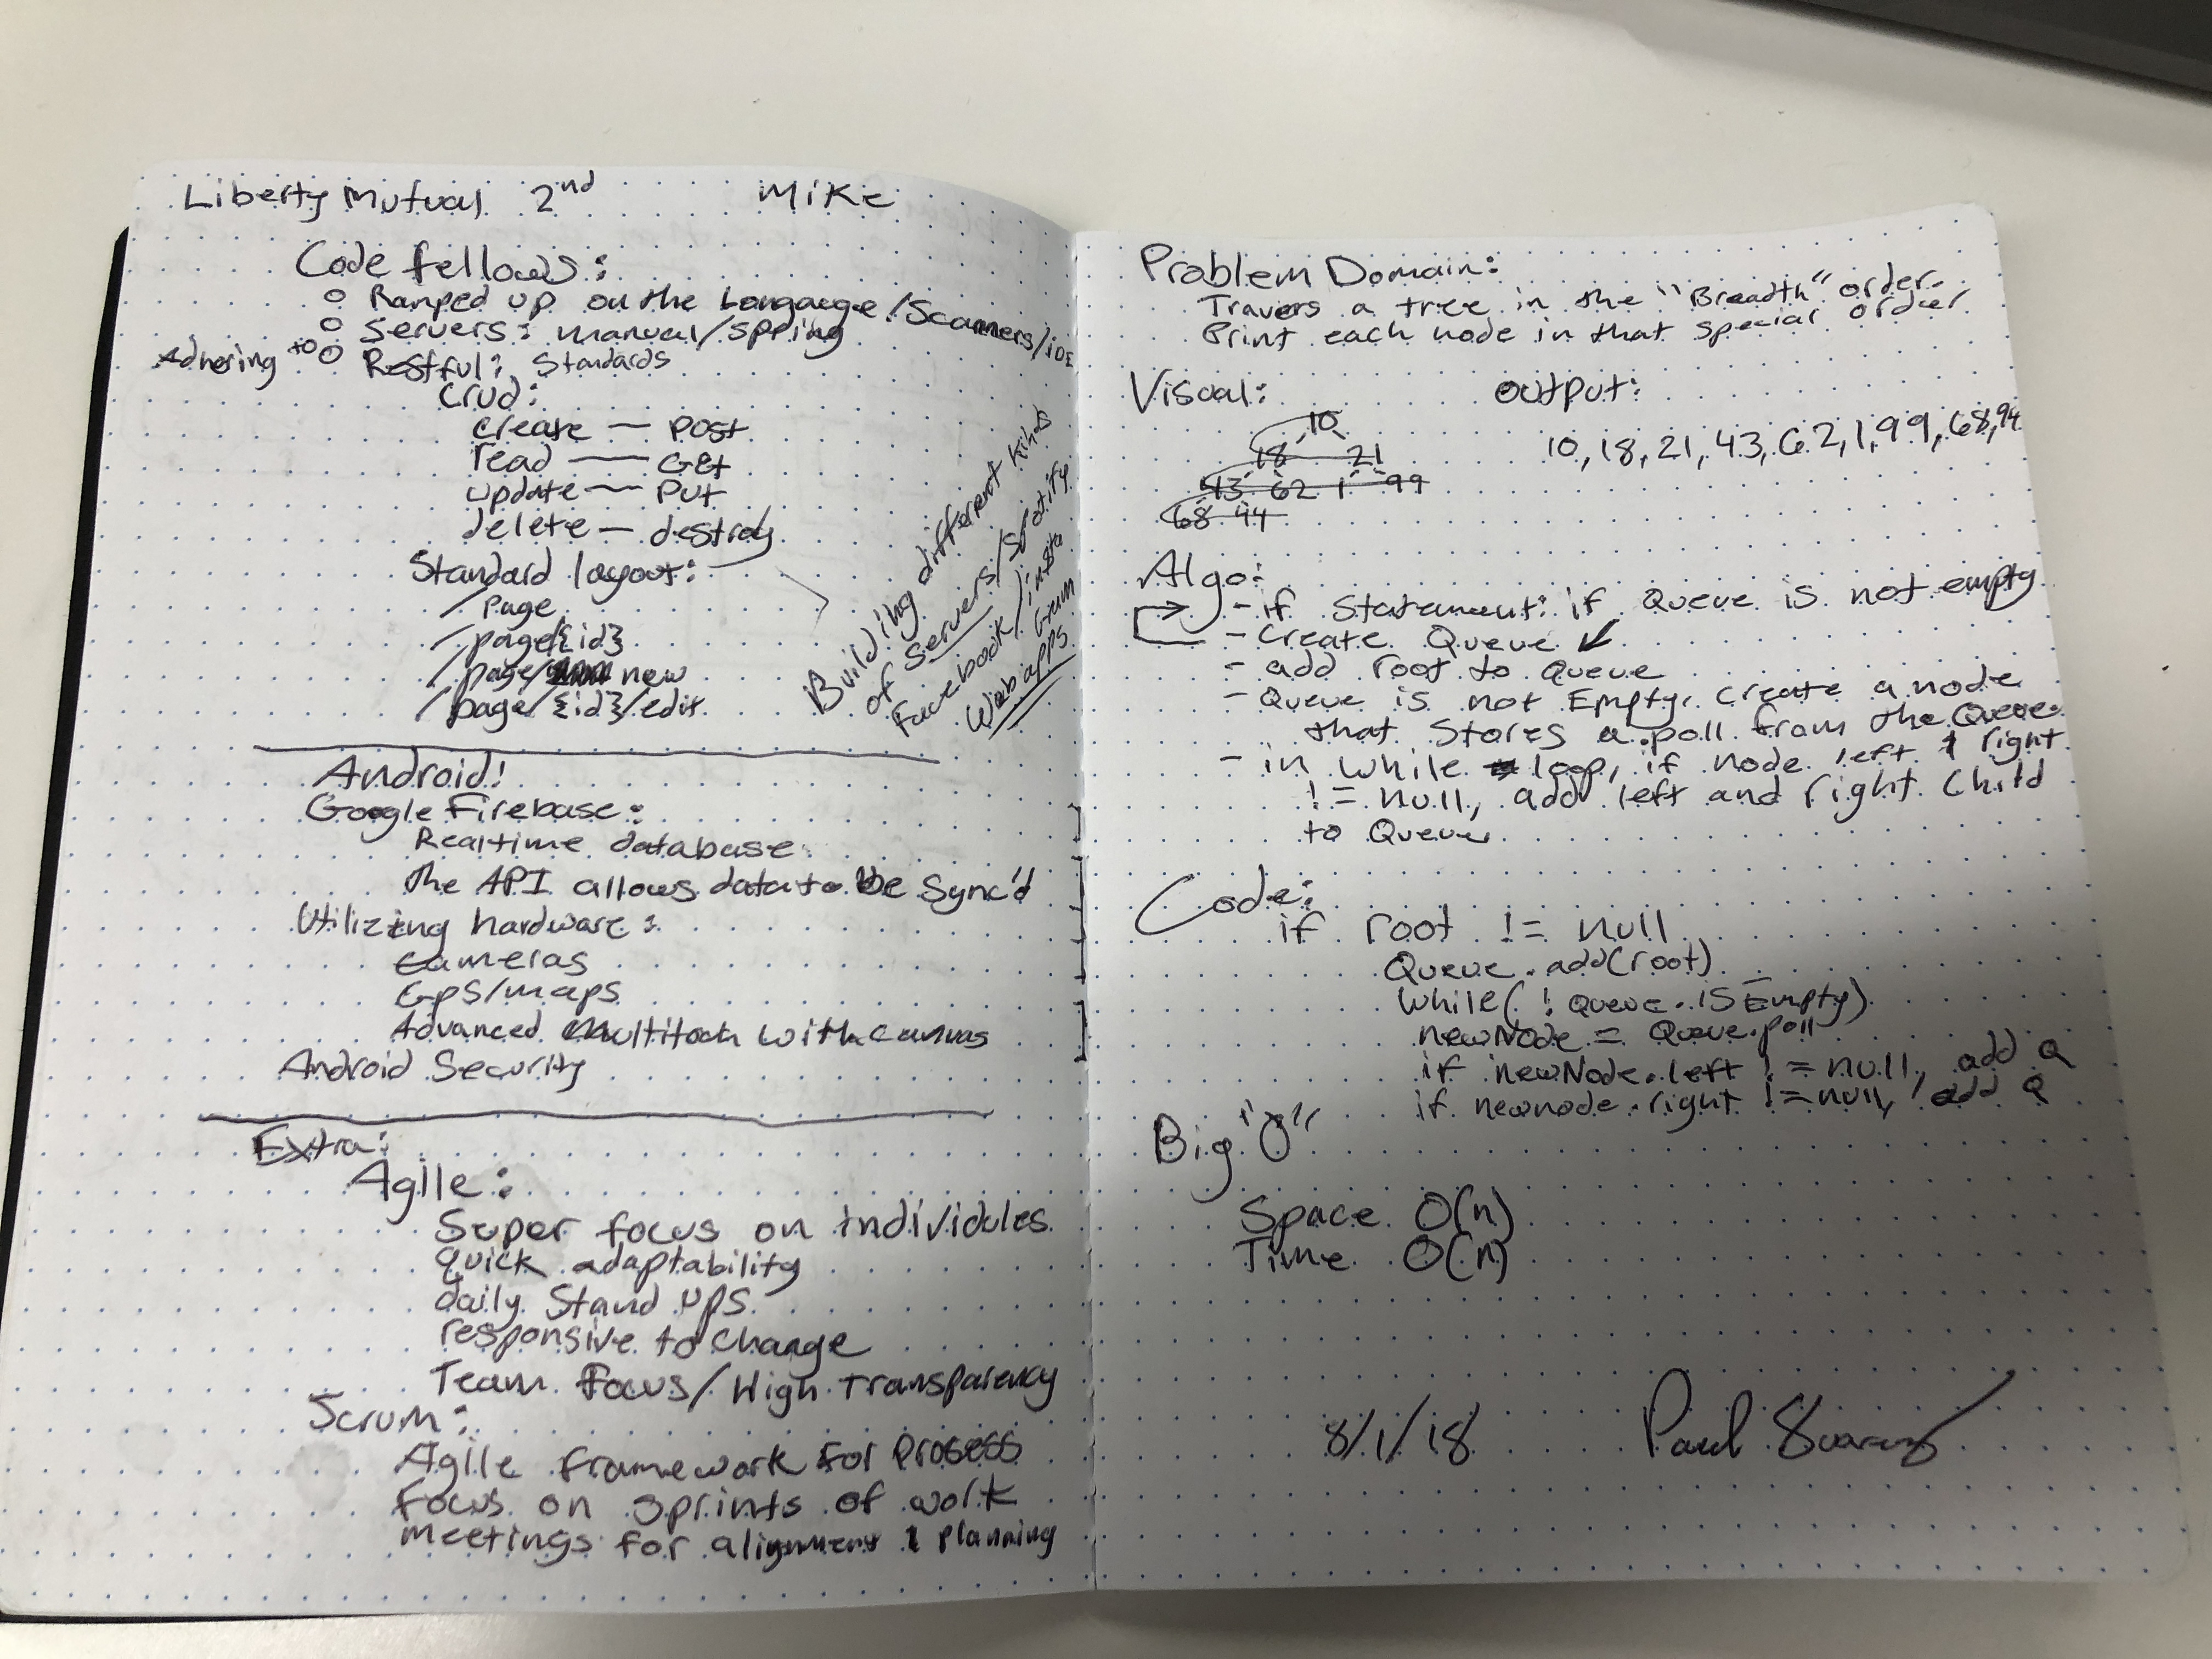 Liberty Mutual 2nd Mike
Code fellows:
o Ramped up on the Langauge /Scanners/ios
o Servers: manual/spring
Adhering to o Restful: Standads
Crud:
create — post
read — Get
update — put
delete — destroy
Standard layout:
/page
/page{id}
/page/new
/page/{id}/edit
Building different kinds
of servers/spotify
facebook/
Web apps
Android:
Google Firebase:
Realtime database
the API allows data to be Sync'd
Utilizing hardware:
cameras
Gps/maps
Advanced multitask with
Android Security
Extra:
Agile:
Super focus on individules
quick adaptability
daily Stand ups
responsive to change
Team focus/High transparency
Scrum:
Agile framework for process
focus on Sprints of work
meetings for alignment & planning
Problem Domain:
Travers a tree in the "Breadth" order.
Print each node in that special order
Viscual: output:
10
18 21
43 62 1 99
68 44
10, 18, 21, 43, 62, 1, 99, 68, 94
Algo:
- if statement: if queue is not empty
- Create Queue
- add root to queue
- Queue is not Empty, create a node
that stores a poll from the Queue
- in while loop, if node left & right
!= null, add left and right child
to Queue
Code:
if root != null
Queue.add(root)
while(!queue.isEmpty)
newNode = Queue.poll
if newNode.left != null, add a
if newnode.right != null, add a
Big "O"
Space O(n)
Time O(n)
8/1/18